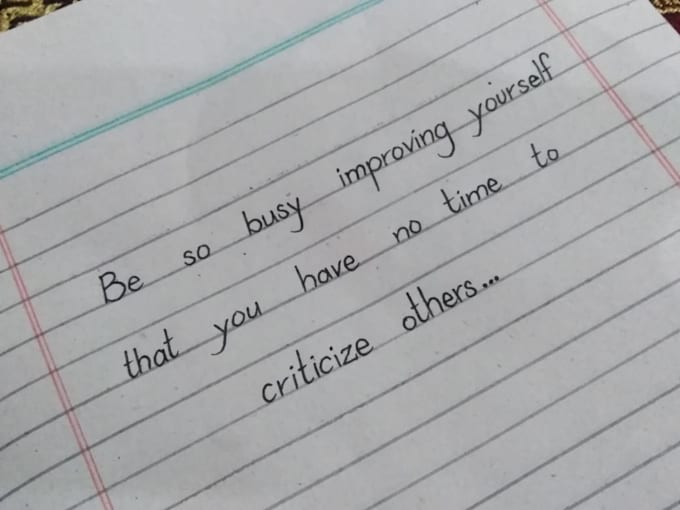 Be so busy improving yourself
that you have no time to
criticize others...